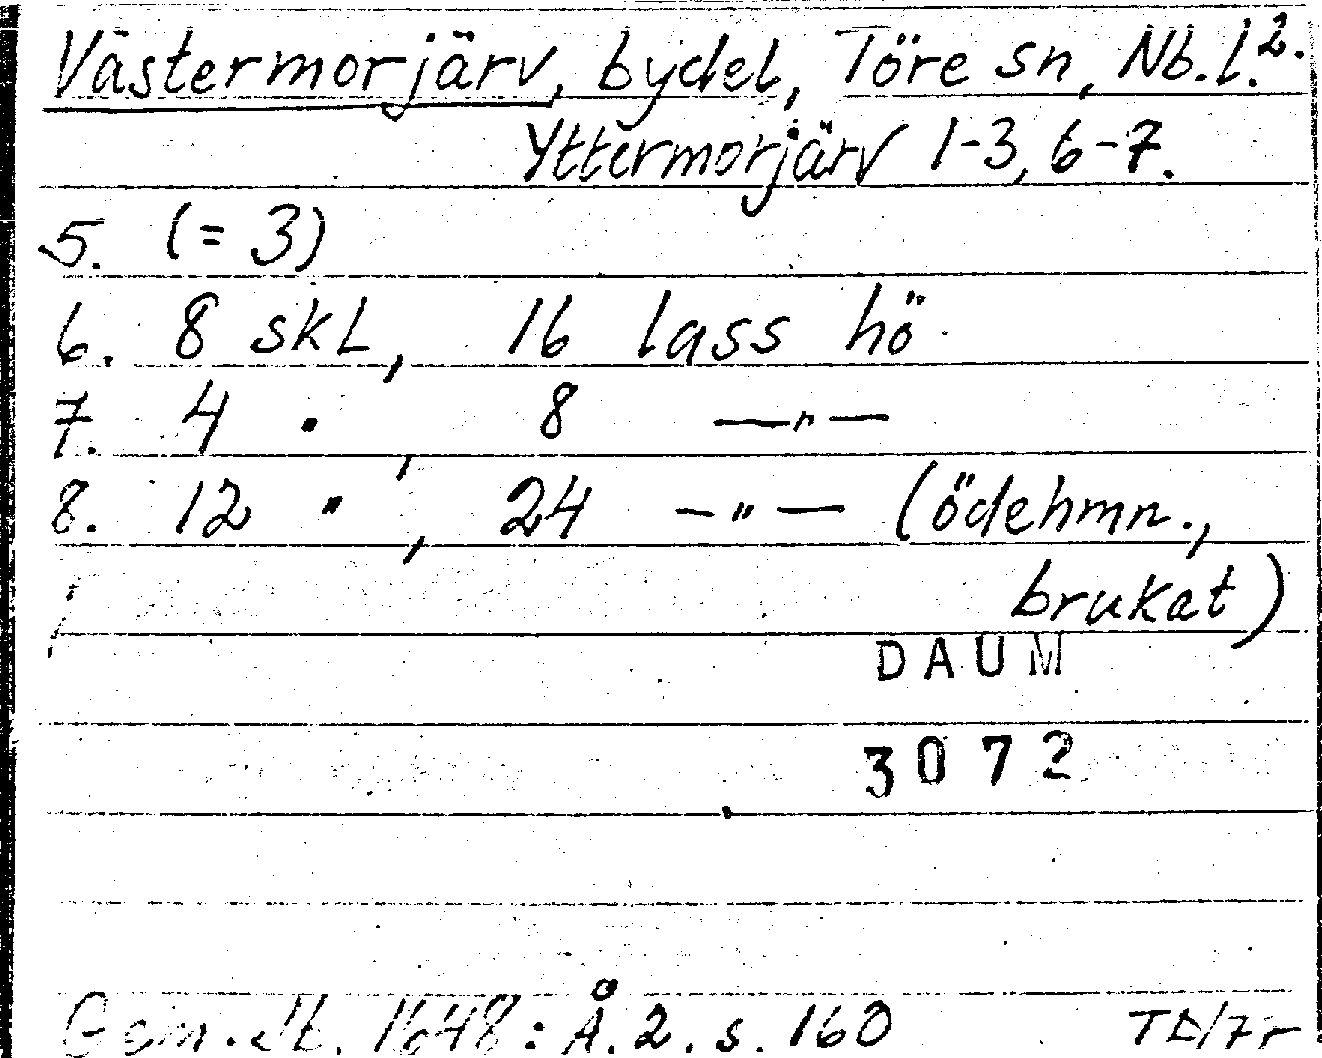 Västermorjärv, bydel, Töre sn, Nb.l. 2.
Yttermorjärv 1-3, 6-7.
5. (= 3)
6. 8 skl, 16 lass hö
7. 4 " , 8 —"—
8. 12 " , 24 —"— (ödehmn.,
brukat)
DAUM
3072
1648: Å. 2. s. 160